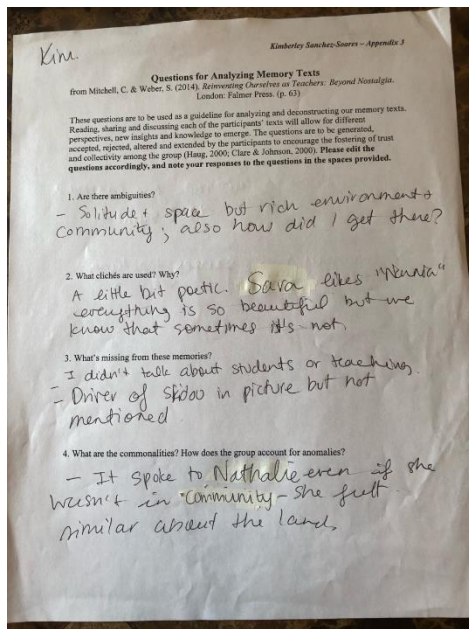 Kim.
Kimberley Sanchez-Soares – Appendix 3
Questions for Analyzing Memory Texts
from Mitchell, C. & Weber, S. (2014). Reinventing Ourselves as Teachers: Beyond Nostalgia.
London: Falmer Press. (p. 63)
These questions are to be used as a guideline for analyzing and deconstructing our memory texts.
Reading, sharing and discussing each of the participants' texts will allow for different
perspectives, new insights and knowledge to emerge. The questions are to be generated,
accepted, rejected, altered and extended by the participants to encourage the fostering of trust
and collectivity among the group (Haug, 2000; Clare & Johnson, 2000). Please edit the
questions accordingly, and note your responses to the questions in the spaces provided.
1. Are there ambiguities?
– Solitude + space but rich environment +
Community; also how did I get there?
2. What clichés are used? Why?
A little bit poetic. Sara likes
everything is so beautiful but we
know that sometimes it's not.
3. What's missing from these memories?
I didn't talk about students or teaching.
– Driver of skidoo in picture but not
mentioned
4. What are the commonalities? How does the group account for anomalies?
– It spoke to Nathalie even if she
wasn't in "Community – she felt
similar about the land.